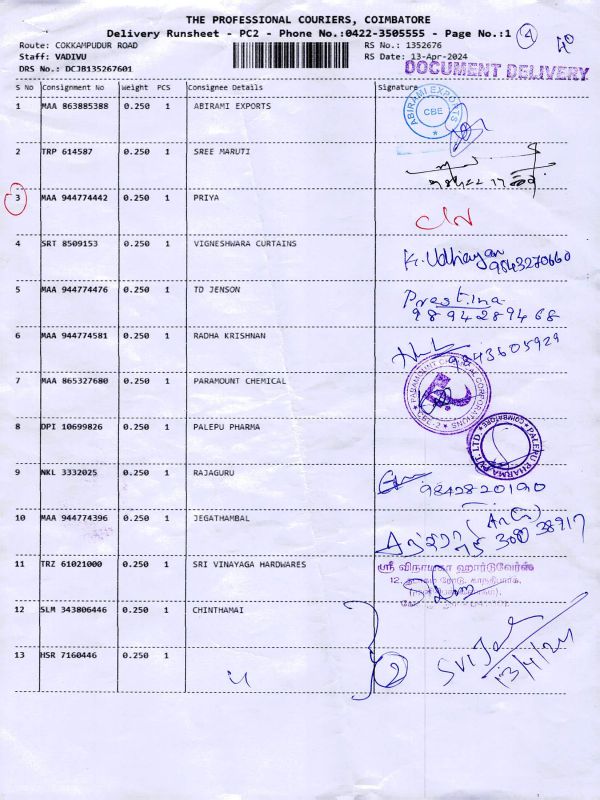 THE PROFESSIONAL COURIERS, COIMBATORE
Delivery Runsheet - PC2 - Phone No.:0422-3505555 - Page No.:1
4
Route: COKKAMPUDUR ROAD
RS No.: 1352676
Staff: VADIVU
RS Date: 13-Apr-2024
DRS No.: DCJB135267601
DOCUMENT DELIVERY
S No Consignment No Weight PCS Consignee Details Signature
1 MAA 863885388 0.250 1 ABIRAMI EXPORTS
ABIRAMI EXPORTS
CBE
2 TRP 614587 0.250 1 SREE MARUTI
3 MAA 944774442 0.250 1 PRIYA
4 SRT 8509153 0.250 1 VIGNESHWARA CURTAINS
K. Udhayan
9843270660
5 MAA 944774476 0.250 1 TD JENSON
9894289468
6 MAA 944774581 0.250 1 RADHA KRISHNAN
9843605929
7 MAA 865327680 0.250 1 PARAMOUNT CHEMICAL
PARAMOUNT CHEMICAL CORPORATIONS
8 DPI 10699826 0.250 1 PALEPU PHARMA
PALEPU PHARMA PVT. LTD
COIMBATORE
9 NKL 3332025 0.250 1 RAJAGURU
9842820190
10 MAA 944774396 0.250 1 JEGATHAMBAL
75 300 38917
11 TRZ 61021000 0.250 1 SRI VINAYAGA HARDWARES
ஸ்ரீ விநாயகா ஹார்டுவேர்ஸ்
12 SLM 343806446 0.250 1 CHINTHAMAI
13 HSR 7160446 0.250 1
2
13/4/24